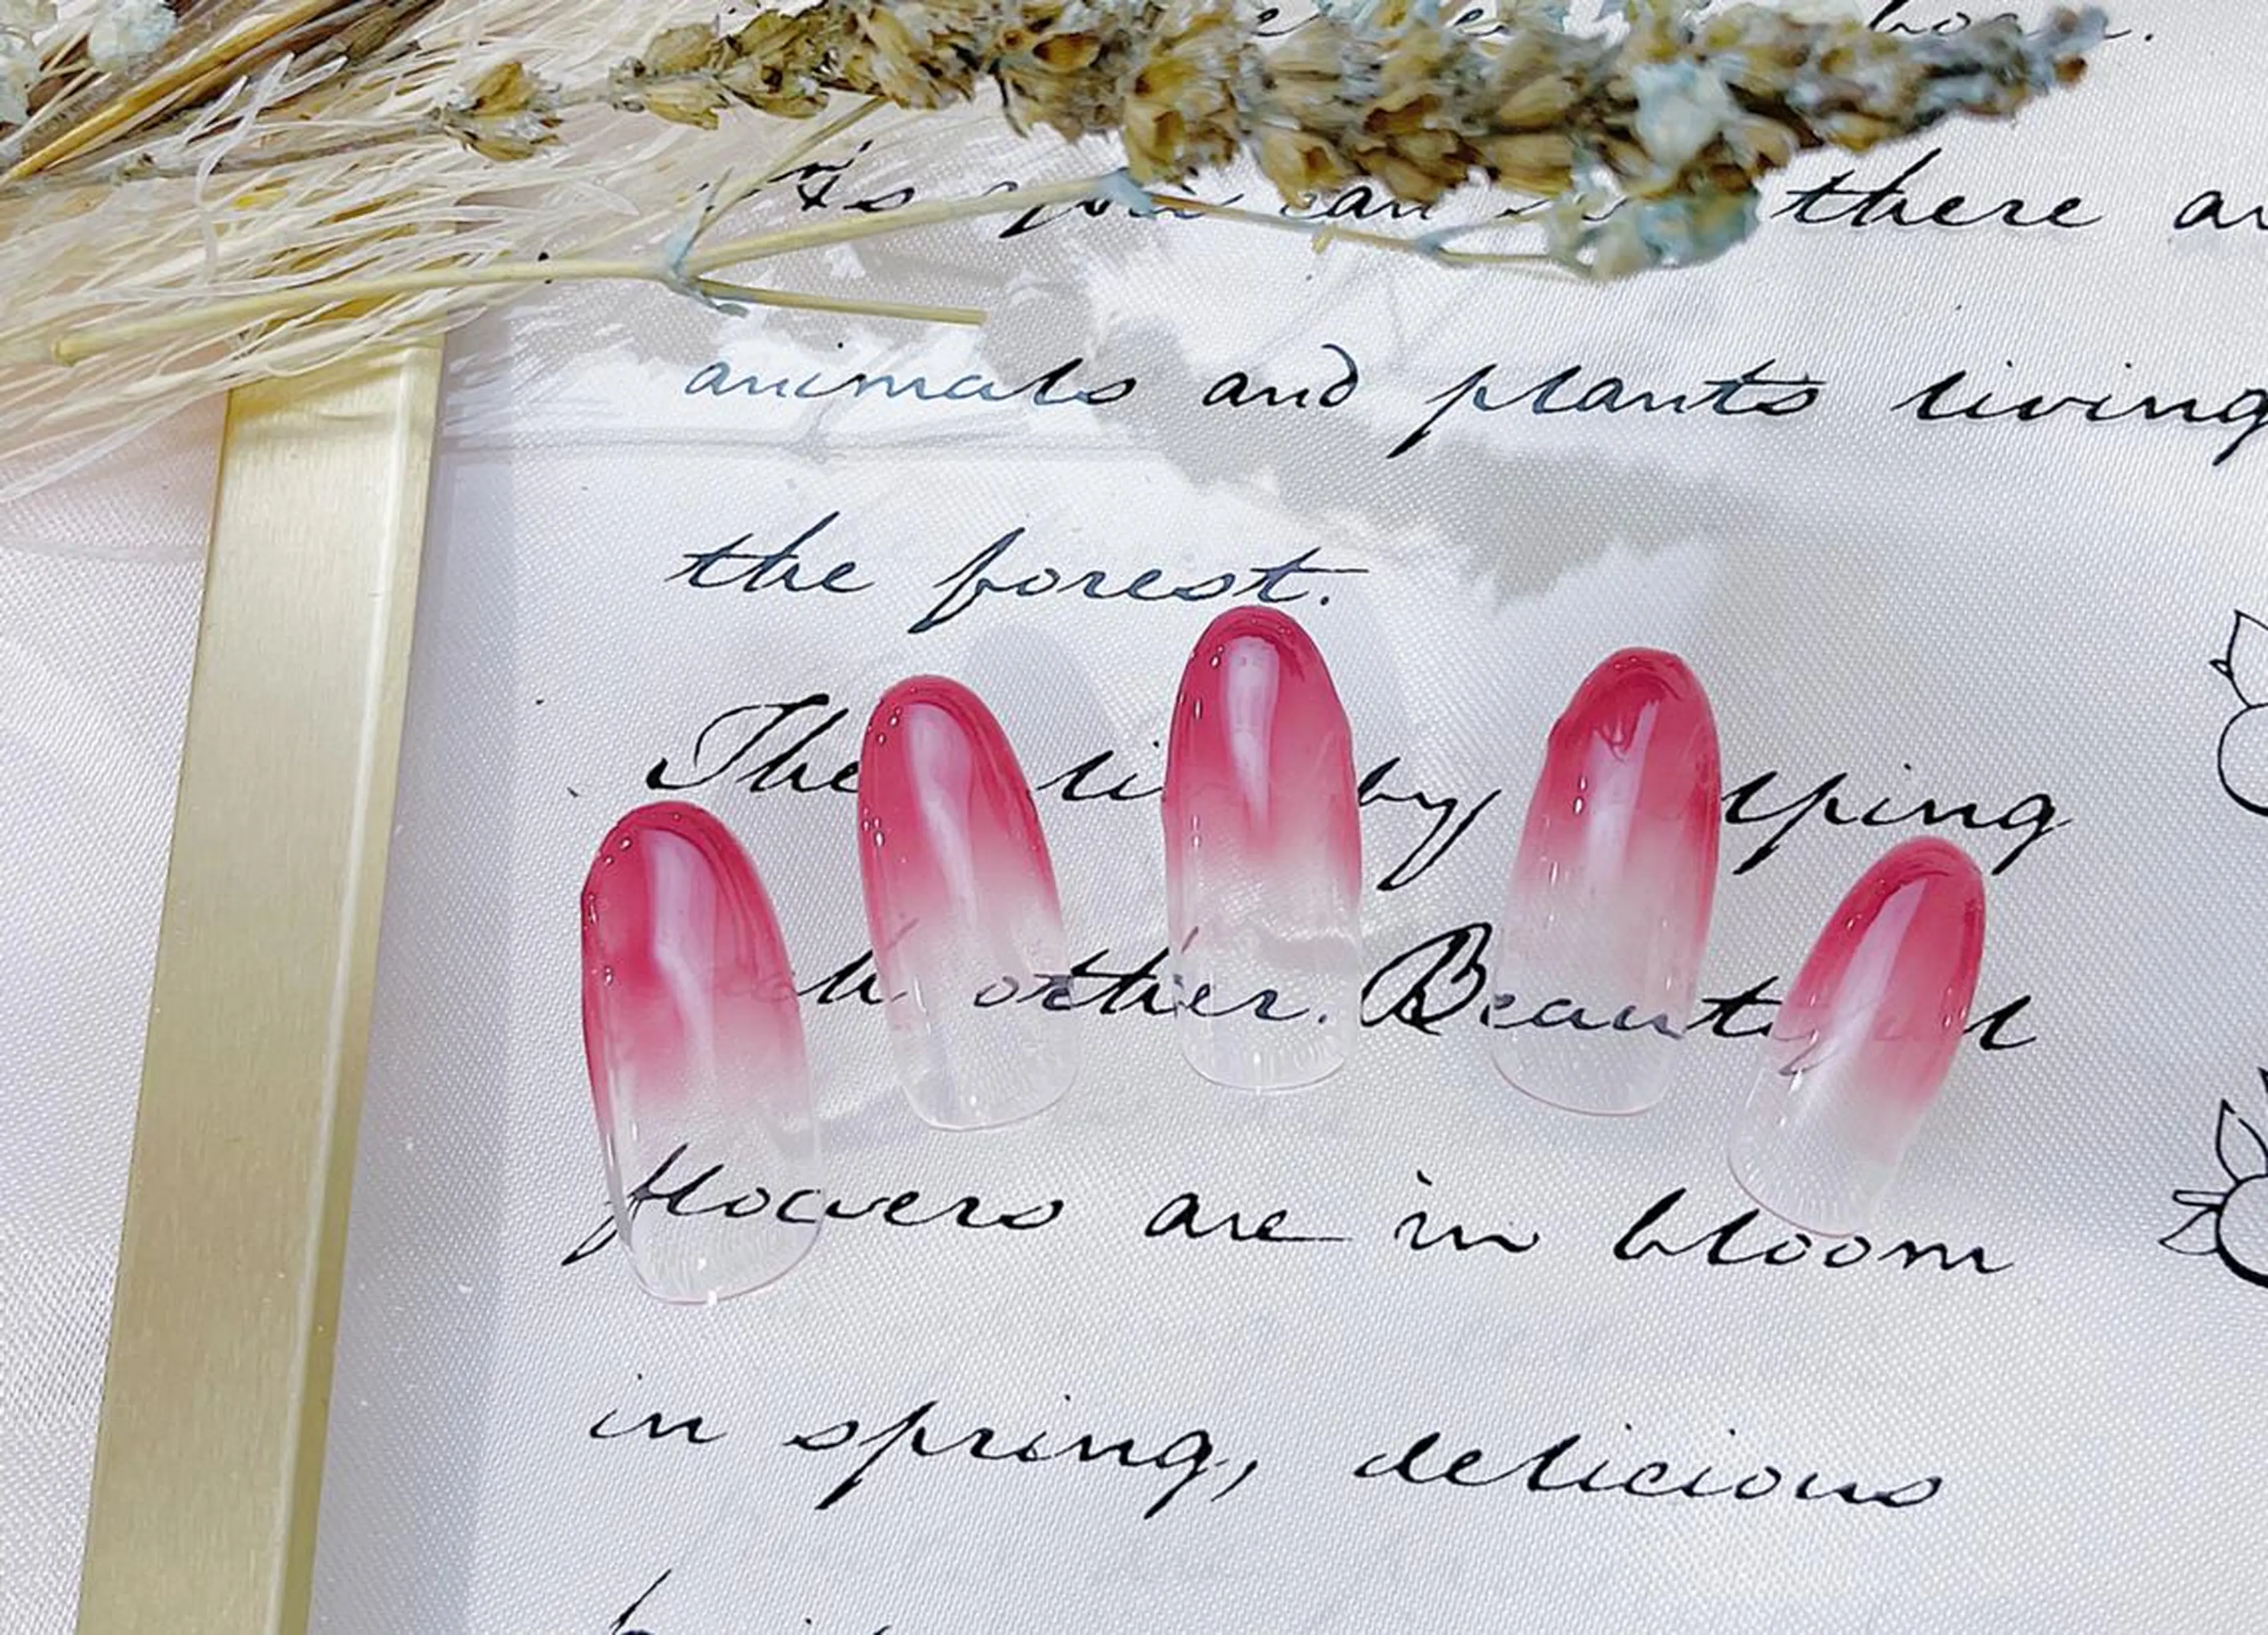 there
animals and plants living
the forest.
The by
other. Beautiful
flowers are in bloom
in spring, delicious